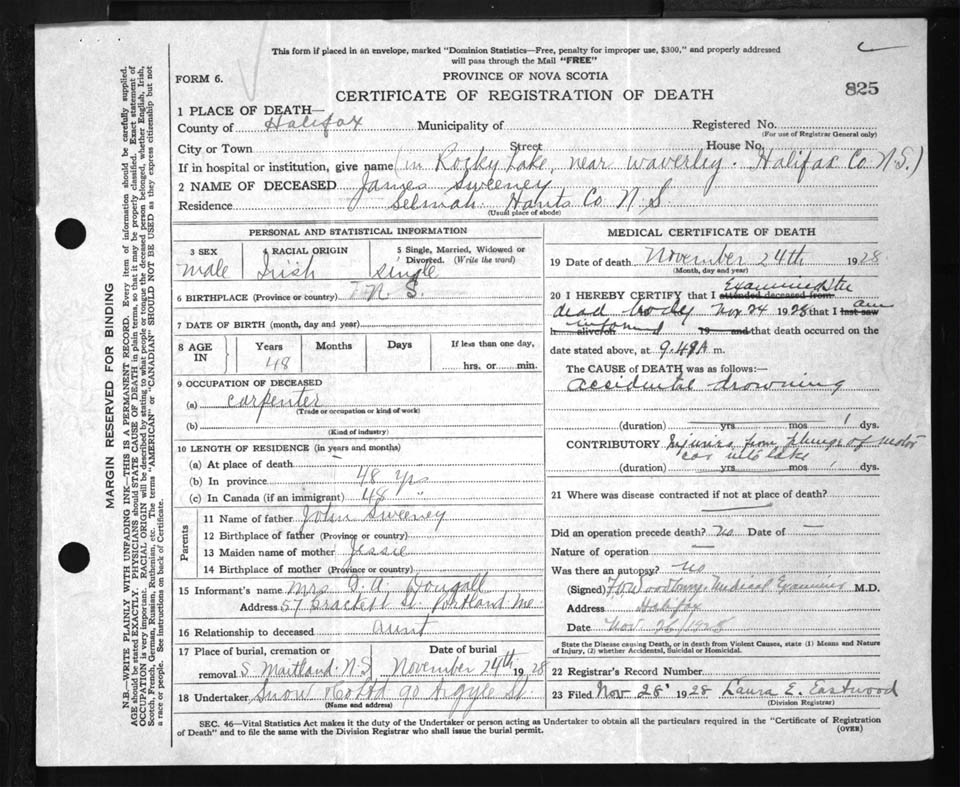 This form if placed in an envelope, marked "Dominion Statistics—Free, penalty for improper use, $300," and properly addressed
will pass through the Mail "FREE"
FORM 6.
PROVINCE OF NOVA SCOTIA
CERTIFICATE OF REGISTRATION OF DEATH
825
1 PLACE OF DEATH—
County of Halifax Municipality of Registered No.
(For use of Registrar General only)
City or Town Street House No.
If in hospital or institution, give name (in Rocky Lake, near Waverley. Halifax Co N.S.)
2 NAME OF DECEASED James Sweeney
Residence Selmah. Hants Co N S
(Usual place of abode)
PERSONAL AND STATISTICAL INFORMATION
3 SEX 4 RACIAL ORIGIN 5 Single, Married, Widowed or
Divorced. (Write the word)
male Irish single
6 BIRTHPLACE (Province or country) N. S.
7 DATE OF BIRTH (month, day and year)
8 AGE IN Years Months Days If less than one day,
48 hrs. or min.
9 OCCUPATION OF DECEASED
(a) carpenter
(Trade or occupation or kind of work)
(b)
(Kind of industry)
10 LENGTH OF RESIDENCE (in years and months)
(a) At place of death —
(b) In province 48 yrs
(c) In Canada (if an immigrant) 48 "
Parents
11 Name of father John Sweeney
12 Birthplace of father (Province or country)
13 Maiden name of mother Jessie
14 Birthplace of mother (Province or country)
15 Informant's name Mrs. Dougall
Address 57 Brackett St. Portland Me
16 Relationship to deceased aunt
17 Place of burial, cremation or Date of burial
removal S. Maitland. N.S November 24th 1928
18 Undertaker Snow & Co Ltd 90 Argyle St
(Name and address)
MEDICAL CERTIFICATE OF DEATH
19 Date of death November 24th 1928
(Month, day and year)
Examined the
20 I HEREBY CERTIFY that I attended deceased from
dead body Nov 24 1928 that I last saw am
h alive on informed 19 and that death occurred on the
date stated above, at 9.49 A m.
The CAUSE of DEATH was as follows:—
accidental drowning
(duration) yrs mos / dys.
CONTRIBUTORY Injuries from plunge of motor
car into lake
(duration) yrs mos / dys.
21 Where was disease contracted if not at place of death?
Did an operation precede death? No Date of —
Nature of operation —
Was there an autopsy? No
(Signed) Medical Examiner M.D.
Address Halifax
Date Nov. 26/1928
State the Disease causing Death, or in death from Violent Causes, state (1) Means and Nature
of Injury, (2) whether Accidental, Suicidal or Homicidal.
22 Registrar's Record Number
23 Filed Nov 28' 1928 Laura E. Eastwood
(Division Registrar)
SEC. 46—Vital Statistics Act makes it the duty of the Undertaker or person acting as Undertaker to obtain all the particulars required in the "Certificate of Registration
of Death" and to file the same with the Division Registrar who shall issue the burial permit.
(OVER)
MARGIN RESERVED FOR BINDING
N.B.—WRITE PLAINLY WITH UNFADING INK—THIS IS A PERMANENT RECORD. Every item of information should be carefully supplied.
AGE should be stated EXACTLY. PHYSICIANS should STATE CAUSE OF DEATH in plain terms, so that it may be properly classified. Exact statement of
OCCUPATION is very important. RACIAL ORIGIN will be described by stating to what people or tongue the deceased person belonged, whether English, Irish,
Scotch, French, German, Russian, Ruthenian, etc. The terms "AMERICAN" or "CANADIAN" SHOULD NOT BE USED as they express citizenship but not
a race or people. See instructions on back of Certificate.